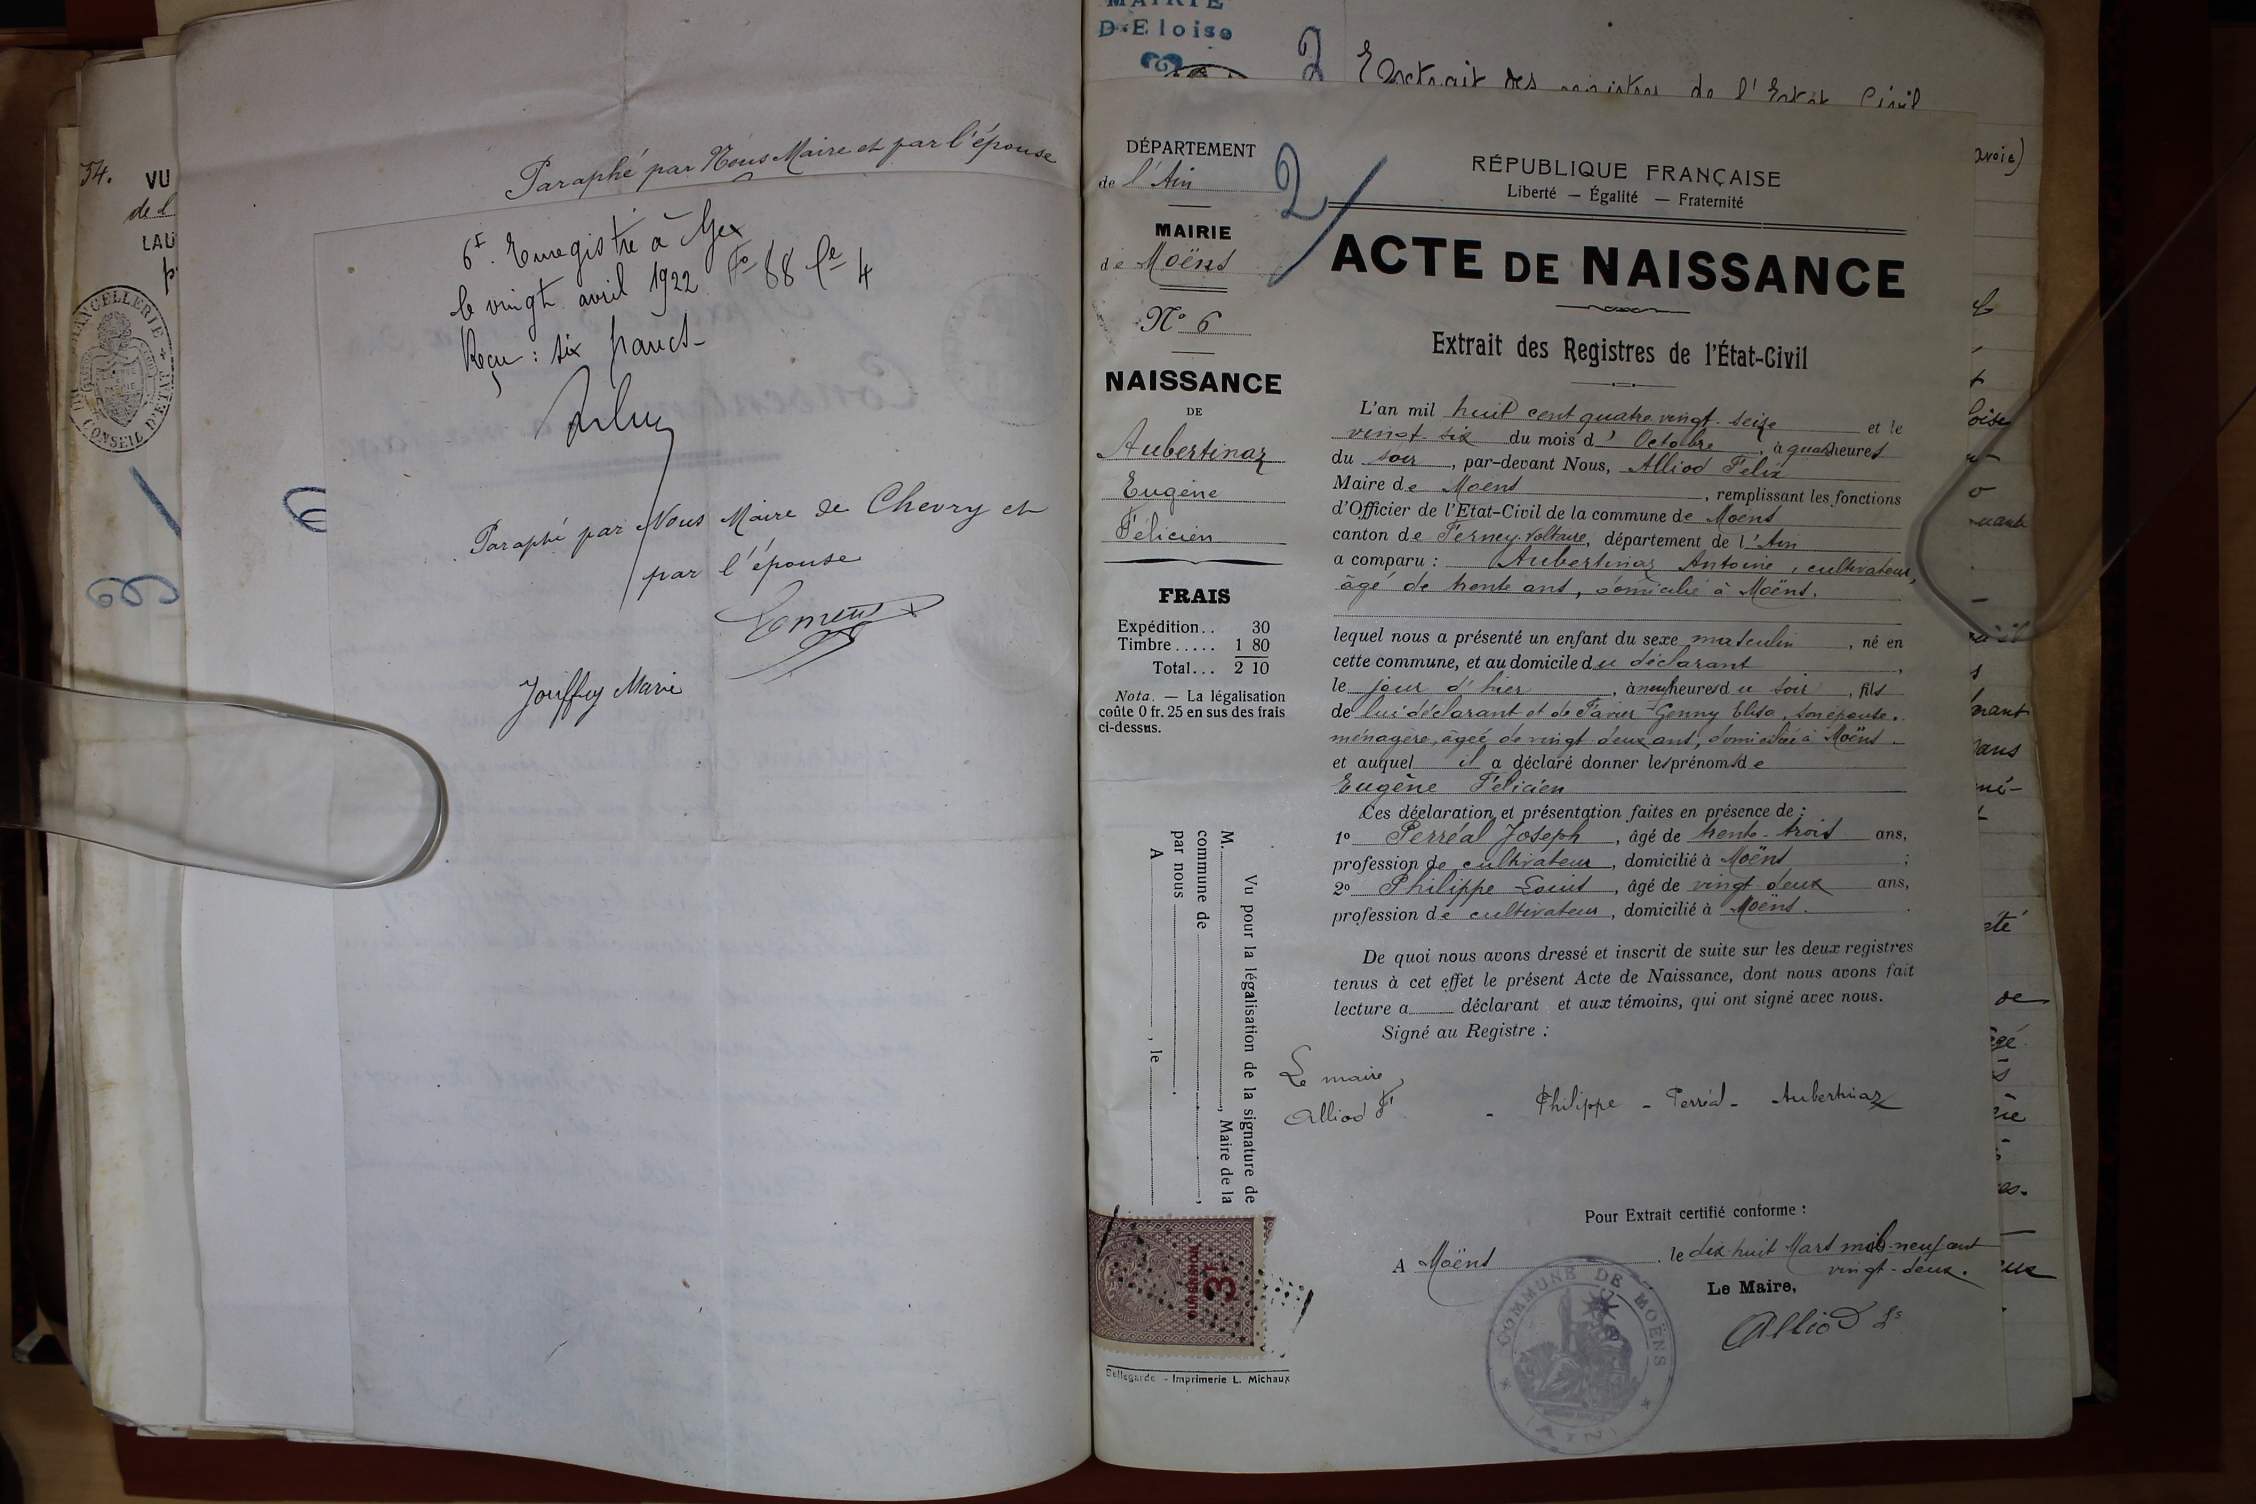 54.
VU
de l
LAU
CHANCELLERIE
CONSEIL D'ETAT
Paraphé par Nous Maire et par l'épouse
6F. Enregistré à Gex
le vingt avril 1922 Fo 88 Ce 4
Reçu : six francs
Paraphé par Nous Maire de Chevry et
par l'épouse
Jouffrey Marie
MAIRIE
D'Eloise
2 Extrait des registres de l'Etat Civil
avoie)
DÉPARTEMENT
de l'Ain
MAIRIE
de Moëns
N° 6
NAISSANCE
DE
Aubertinaz
Eugène
Félicien
FRAIS
Expédition.. 30
Timbre..... 1 80
Total... 2 10
Nota. — La légalisation
coûte 0 fr. 25 en sus des frais
ci-dessus.
Vu pour la légalisation de la signature de
M. , Maire de la
commune de ,
par nous .
A , le
DIMENSION
3F
Bellegarde - Imprimerie L. Michaux
2
RÉPUBLIQUE FRANÇAISE
Liberté — Égalité — Fraternité
ACTE DE NAISSANCE
Extrait des Registres de l'État-Civil
L'an mil huit cent quatre vingt-seize et le
vingt-six du mois d' Octobre, à quatre heures
du soir, par-devant Nous, Alliod Félix
Maire de Moëns, remplissant les fonctions
d'Officier de l'Etat-Civil de la commune de Moëns
canton de Ferney-Voltaire, département de l'Ain
a comparu : Aubertinaz Antoine, cultivateur,
âgé de trente ans, domicilié à Moëns.
lequel nous a présenté un enfant du sexe masculin, né en
cette commune, et au domicile du déclarant,
le jour d'hier, à neuf heures du soir, fils
de lui déclarant et de Favier Genny Elisa, son épouse,
ménagère, âgée de vingt deux ans, domiciliée à Moëns.
et auquel il a déclaré donner les prénoms de
Eugène Félicien
Ces déclaration et présentation faites en présence de :
1° Perréal Joseph, âgé de trente-trois ans,
profession de cultivateur, domicilié à Moëns ;
2° Philippe Louis, âgé de vingt deux ans,
profession de cultivateur, domicilié à Moëns.
De quoi nous avons dressé et inscrit de suite sur les deux registres
tenus à cet effet le présent Acte de Naissance, dont nous avons fait
lecture a déclarant et aux témoins, qui ont signé avec nous.
Signé au Registre :
Le maire
Alliod F - Philippe - Perréal - Aubertinaz
Pour Extrait certifié conforme :
A Moëns le dix huit Mars mil-neuf cent
vingt-deux.
Le Maire,
Alliod
COMMUNE DE MOËNS
(AIN)